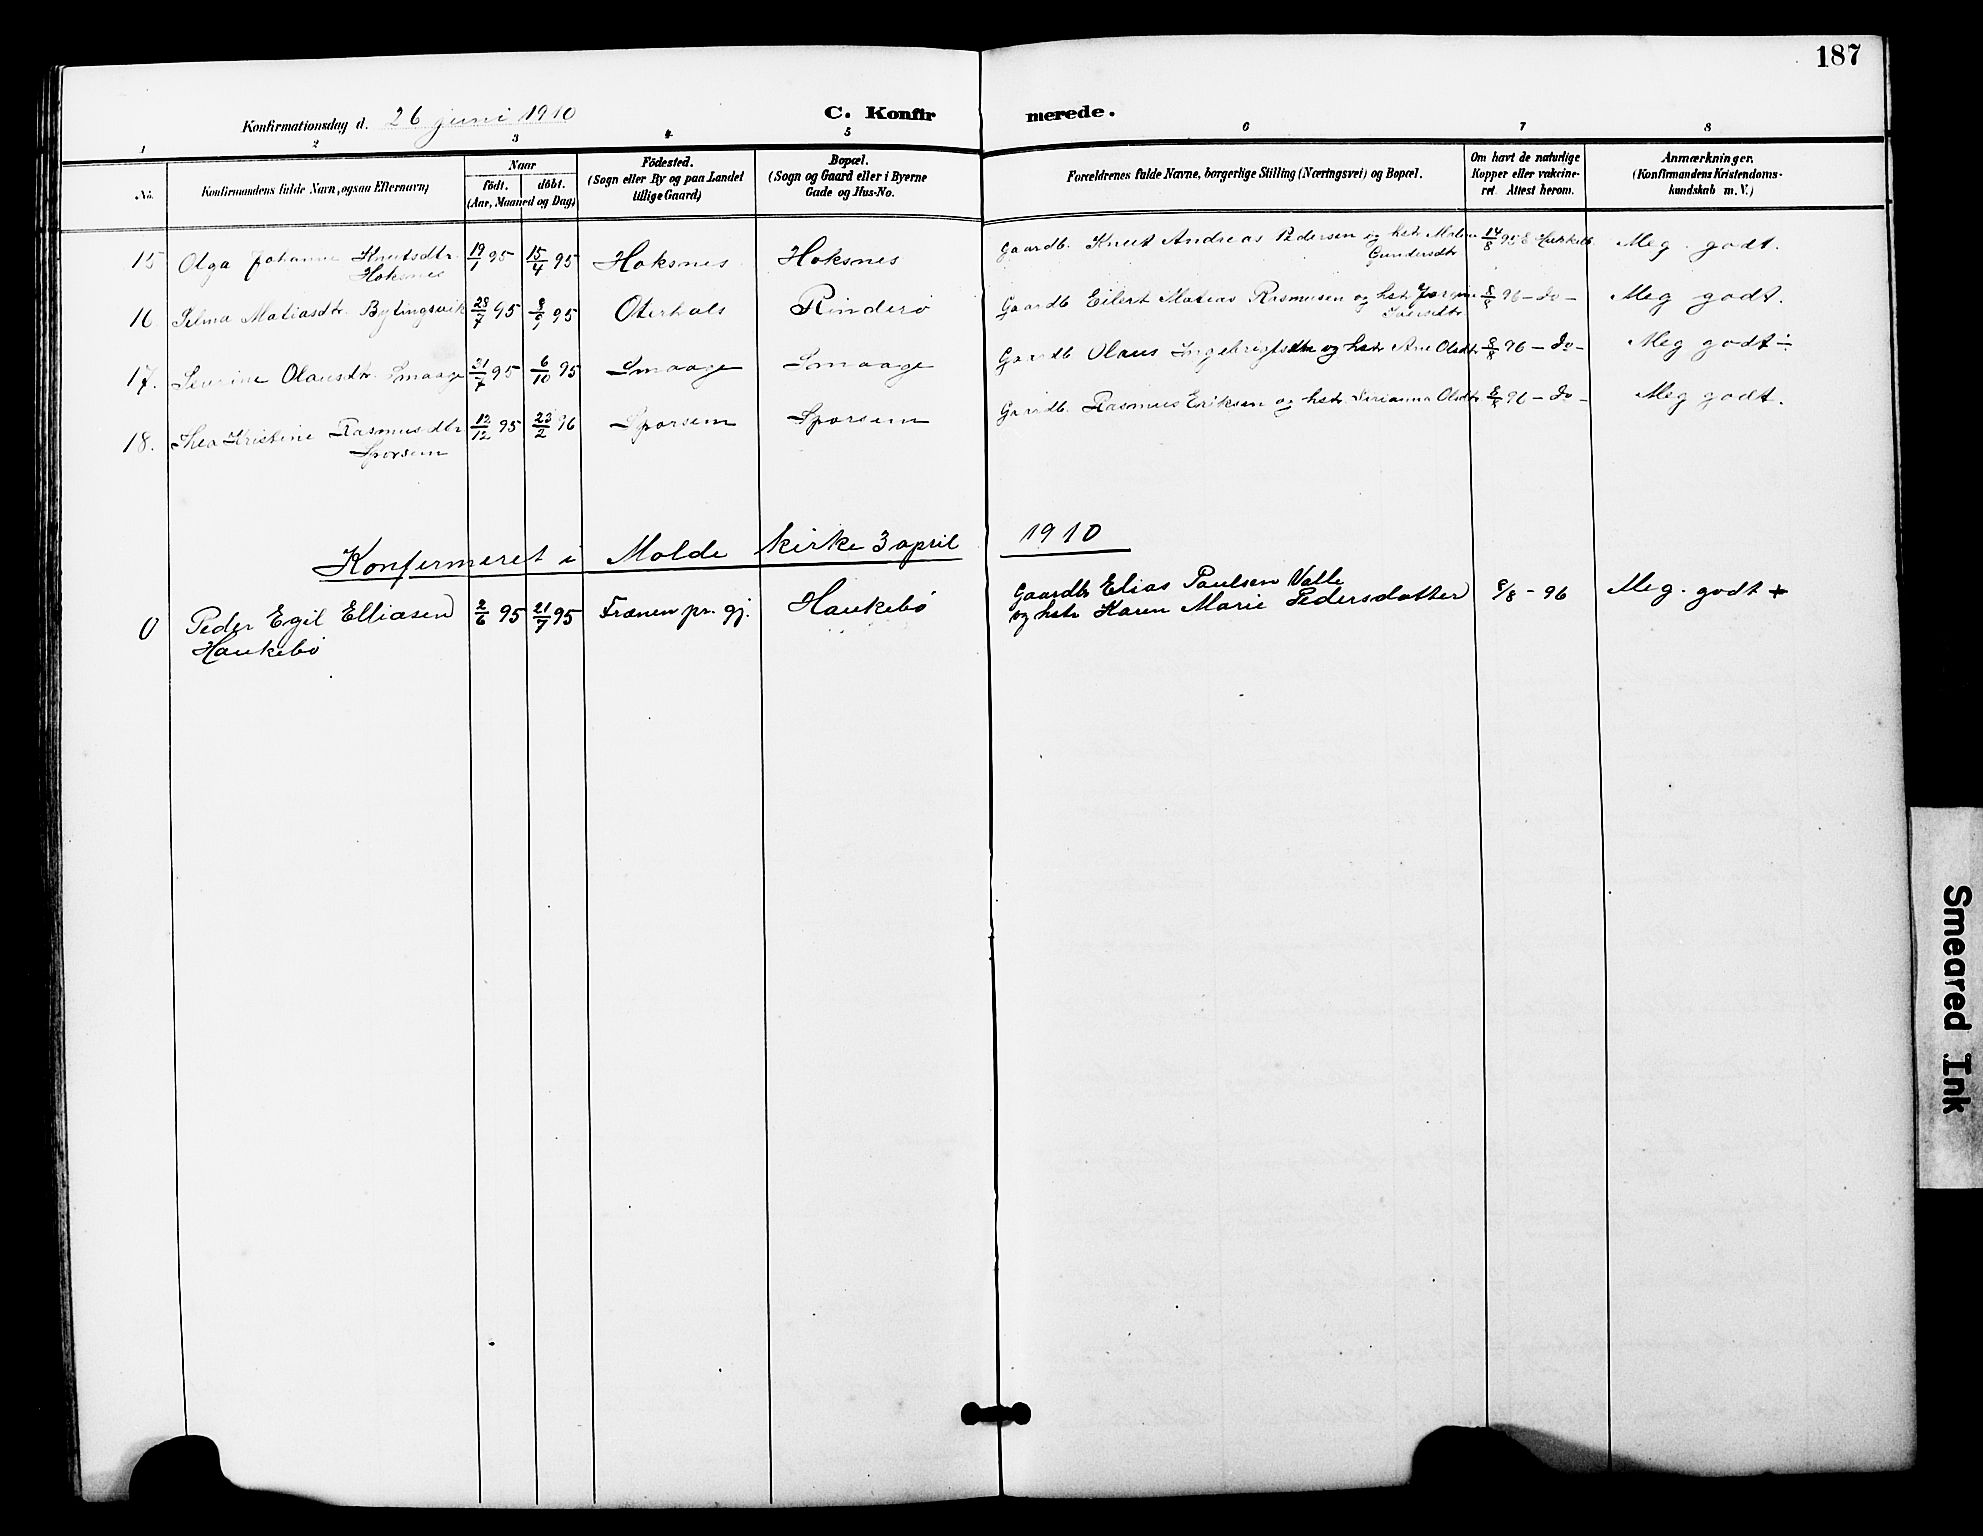 187
Konfirmationsdag d. 26 juni 1910
C. Konfirmerede.
1 2 3 4 5 6 7 8
No.
Konfirmandens fulde Navn, ogsaa Efternavn)
Naar
födt. döbt.
(Aar, Maaned og Dag)
Födested.
(Sogn eller By og paa Landet
tillige Gaard)
Bopæl.
(Sogn og Gaard eller i Byerne
Gade og Hus-No.
Forældrenes fulde Navne, borgerlige Stilling (Næringsvei) og Bopæl.
Om havt de naturlige
Kopper eller vakcine-
ret. Attest herom.
Anmærkninger.
(Konfirmandens Kristendoms-
kundskab m. V.)
15 Olga Johanne Knutsdtr. 19/1 95 15/4 95 Hoksnes Hoksnes Gaardb. Knut Andreas Pedersen og hstr Malene 14/8 95 Meg. godt.
Hoksnes
Gundersdtr
16 Selma Matiasdtr. Bytingsvik 28/7 95 8/9 95 Oterhals Rinderö Gaardb. Eilert Matias Rasmusen og hstr 8/8 96 - do - Meg godt.
Iversdtr
17. Sevrine Olausdtr. Smaage 31/7 95 6/10 95 Smaage Smaage Gaardb. Olaus Ingebrigtsen og hstr Ane Olsdtr 8/8 96 - do - Meg godt ÷
18. Thea Kristine Rasmusdtr 12/12 95 23/2 96 Sporsem Sporsem Gaardb. Rasmus Eriksen og hstr. Serianna Olsdtr 8/8 96 - do - Meg godt.
Sporsem
Konfirmeret i Molde kirke 3 april 1910
0 Peder Egil Elliasen 2/6 95 21/7 95 Frænen pr. gj. Haukebö Gaardb Elias Paulsen Valle 8/8 - 96 Meg. godt +
Haukebö
og hstr Karen Marie Pedersdatter
Smeared Ink